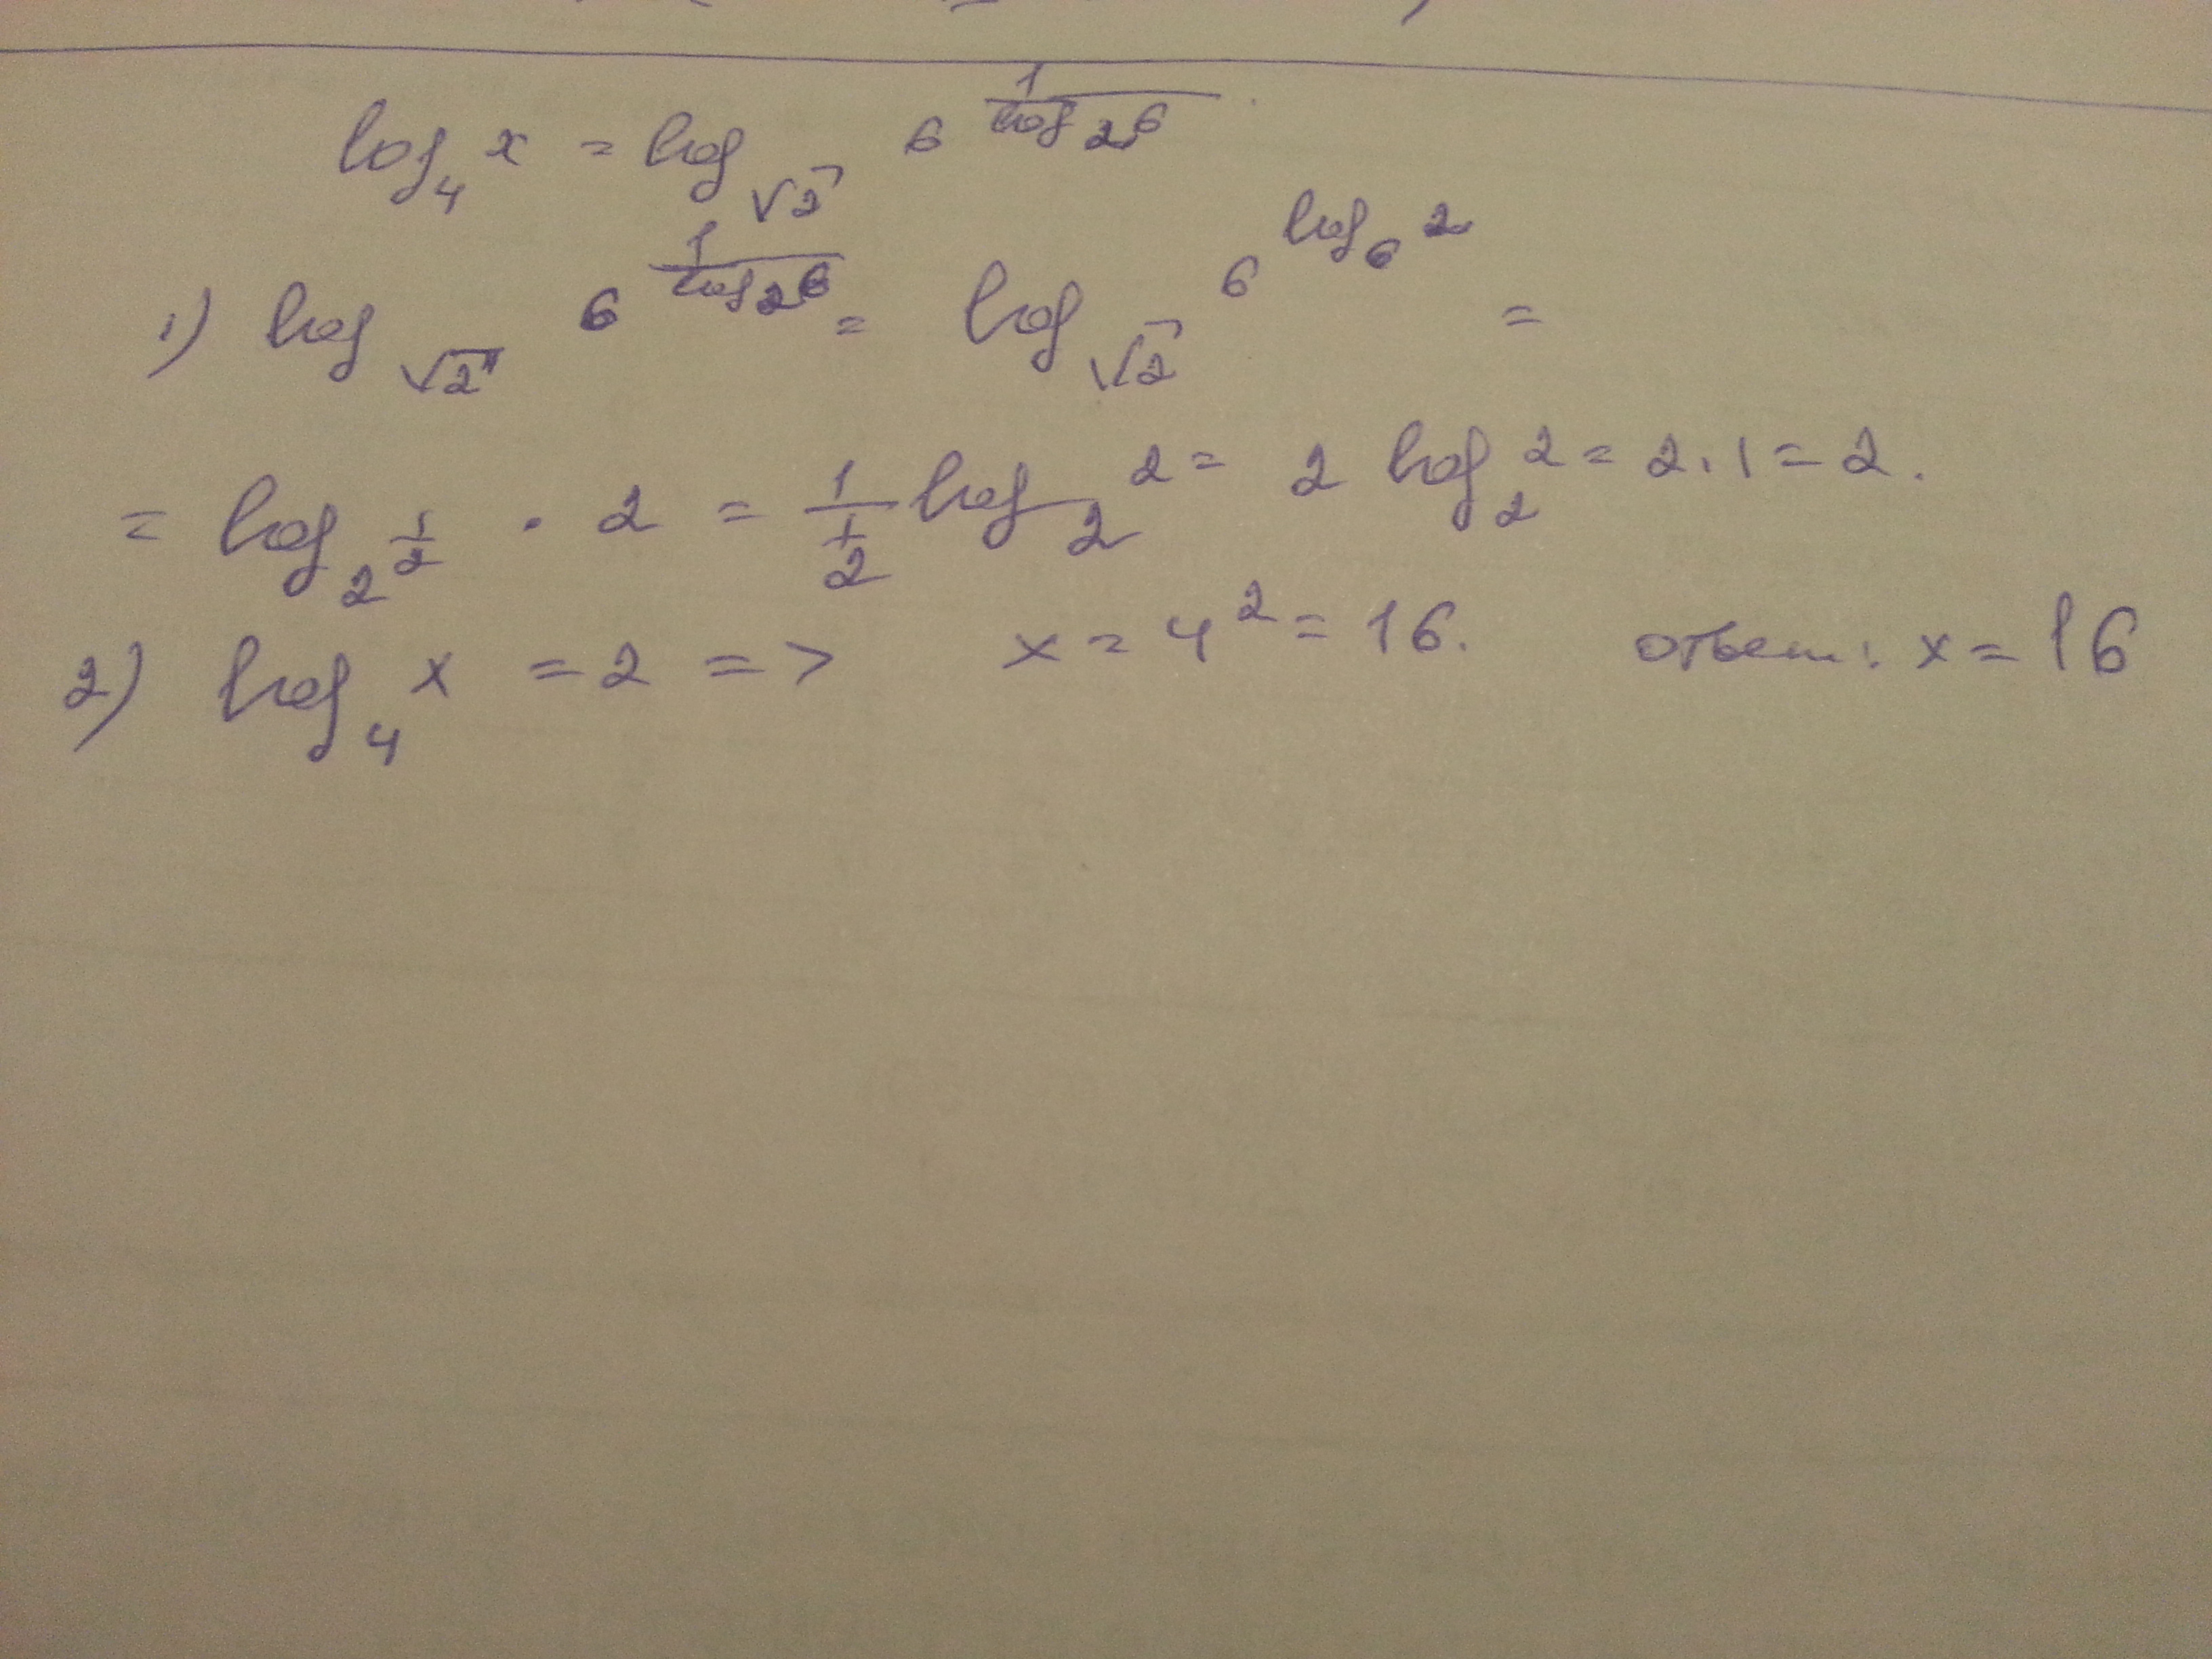 log₄ x = log_√2 6^(1/log₂6)
1) log_√2 6^(1/log₂6) = log_√2 6^(log₆ 2) =
= log_2^(1/2) · 2 = 1/(1/2) log₂ 2 = 2 log₂ 2 = 2 · 1 = 2.
2) log₄ x = 2 => x = 4² = 16. ответ: x = 16